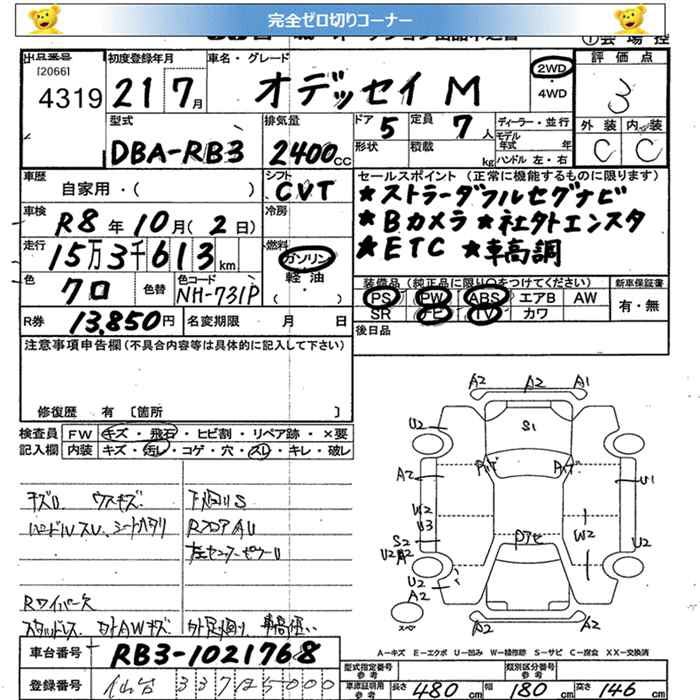 完全ゼロ切りコーナー
出品番号 初度登録年月 車名・グレード 評価点
[2066]
4319 21 7月 オデッセイ M 2WD ・ 4WD 3
型式 排気量 ドア 5 定員 7人 ディーラー・並行 外装 内装
DBA-RB3 2400cc 形状 積載 kg モデル年式 年 C C
ハンドル 左・右
車歴 シフト セールスポイント (正常に機能するものに限ります)
自家用・( ) CVT ★ストラーダフルセグナビ
車検 冷房 ★Bカメラ ★社外エンスタ
R8年10月(2日) ★ETC ★車高調
走行 燃料
15万3千613km ガソリン
軽油・( )
色 色替 色コード 装備品(純正品に限り○をつけてください) 新車保証書
クロ NH-731P PS PW ABS エアB AW 有・無
R券 13,850円 名変期限 月 日 SR TV カワ
後日品
注意事項申告欄(不具合内容等は具体的に記入して下さい)
修復歴 有 〔箇所 〕
検査員 FW キズ・飛石・ヒビ割・リペア跡・×要
記入欄 内装 キズ・汚レ・コゲ・穴・スレ・キレ・破レ
A2 A2 A1
U2 S1 U2
A2 U1
U2
U3 W2
S2
U2 A2 U2
U2
A2
A2 A2
キズU ウスキズ 下廻りS
ハンドルスレ、シート RフロアAU
Rワイパー欠
スタッドレス 外AWキズ
A-キズ E-エクボ U-凹み W-補修跡 S-サビ C-腐食 XX-交換済
車台番号 RB3-1021768
型式指定番号 参考 類別区分番号 参考
登録番号 仙台 337125000
車庫証明用 参考 長さ 480cm 幅 180cm 高さ 146cm